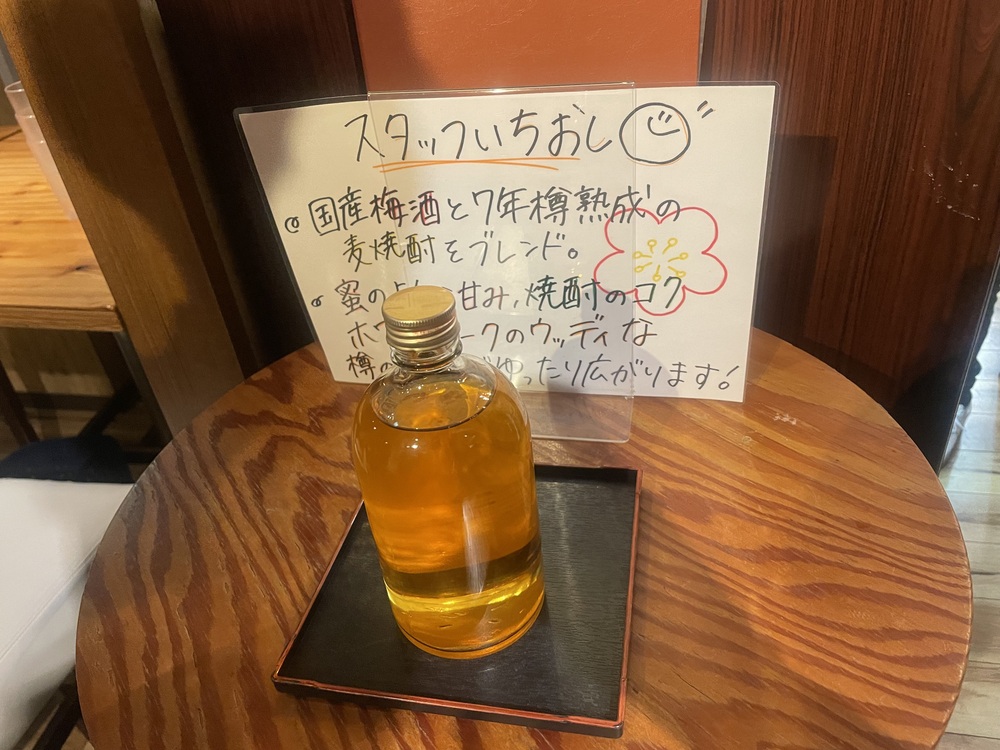 スタッフいちおし
国産梅酒と7年樽熟成の
麦焼酎をブレンド。
蜜のような甘み,焼酎のコク
ホワ ークのウッディな
樽の ゆったり広がります!